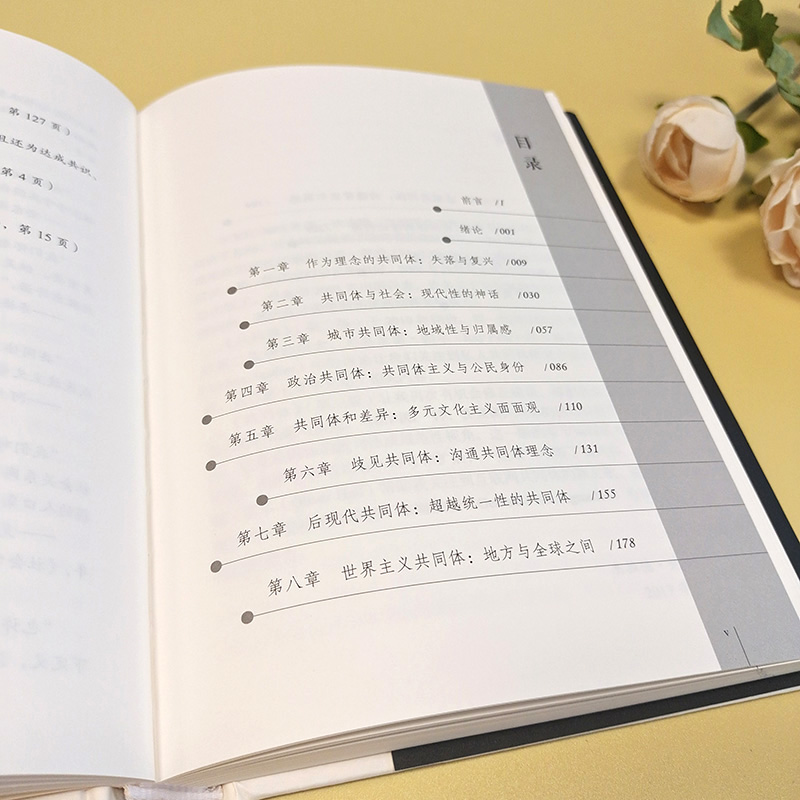 第 127 页）
且还为达成共识、
第 4 页）
．第 15 页）
目录
前言 /1
绪论 /001
第一章 作为理念的共同体：失落与复兴 /009
第二章 共同体与社会：现代性的神话 /030
第三章 城市共同体：地域性与归属感 /057
第四章 政治共同体：共同体主义与公民身份 /086
第五章 共同体和差异：多元文化主义面面观 /110
第六章 歧见共同体：沟通共同体理念 /131
第七章 后现代共同体：超越统一性的共同体 /155
第八章 世界主义共同体：地方与全球之间 /178
V